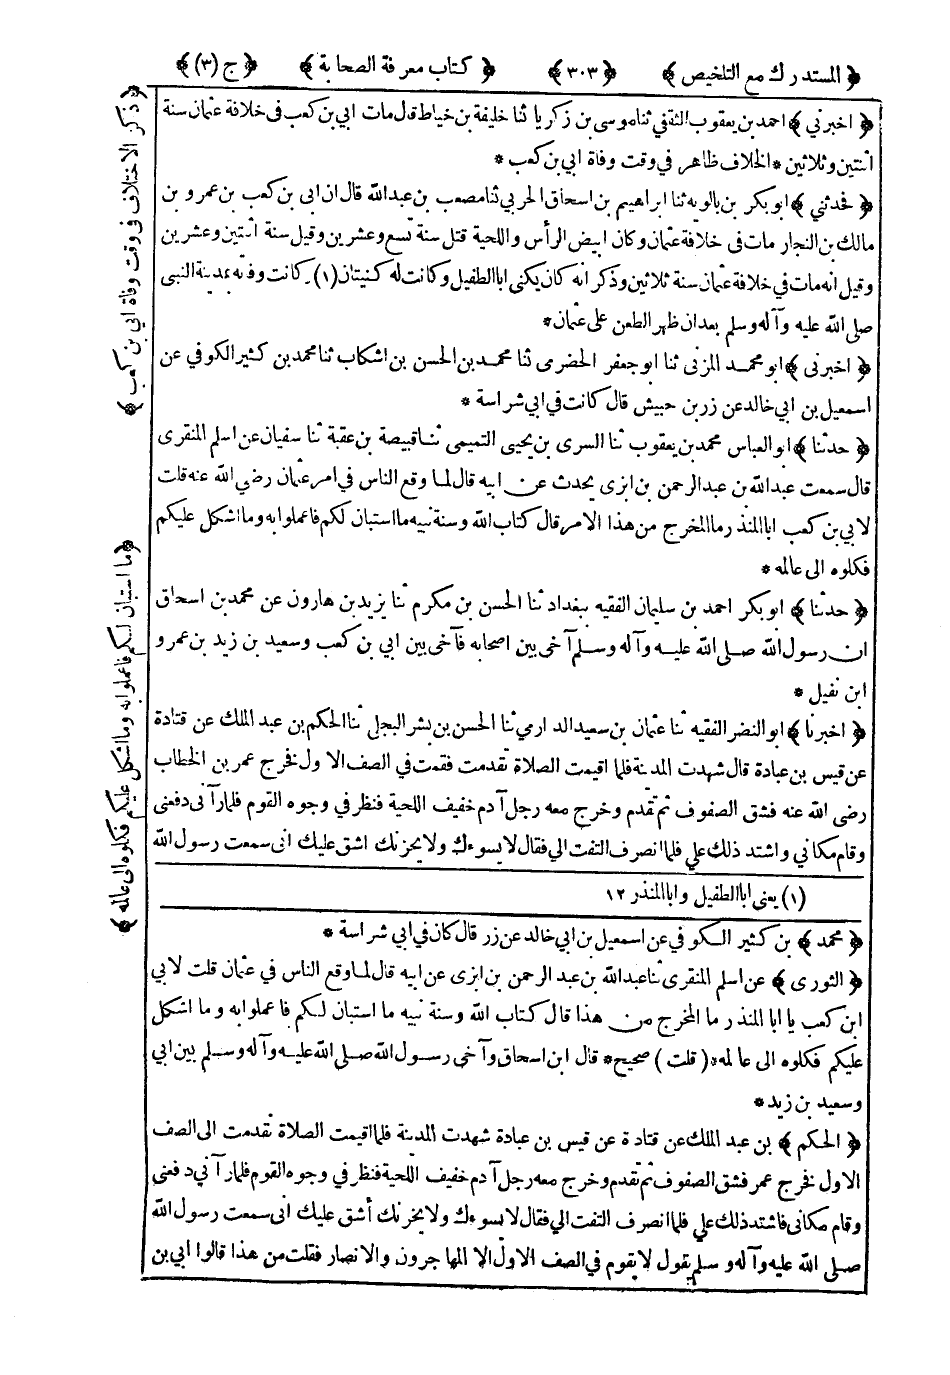 ﴿ المستدرك مع التلخيص ﴾ ﴿ ٣٠٣ ﴾ ﴿ كتاب معرفة الصحابة ﴾ ﴿ ج (٣) ﴾
﴿ اخبرني ﴾ احمد بن يعقوب الثقفي ثنا موسى بن زكريا ثنا خليفة بن خياط قال مات ابي بن كعب في خلافة عثمان سنة
اثنتين وثلاثين * الخلاف ظاهر في وقت وفاة ابي بن كعب *
﴿ فحدثني ﴾ ابو بكر بن بالويه ثنا ابراهيم بن اسحاق الحربي ثنا مصعب بن عبدالله قال ان ابى بن كعب بن عمرو بن
مالك بن النجار مات فى خلافة عثمان وكان ابيض الرأس واللحية قتل سنة تسع وعشرين وقيل سنة اثنتين وعشرين
وقيل انه مات في خلافة عثمان سنة ثلاثين وذكر انه كان يكنى ابا الطفيل وكانت له كنيتان (١) ـ كانت وفته بمدينة النبى
صلى الله عليه وآله وسلم بعد ان ظهر الطعن على عثمان *
﴿ اخبرنى ﴾ ابو محمد المزنى ثنا ابو جعفر الحضرى ثنا محمد بن الحسن بن اشكاب ثنا محمد بن كثير الكوفي عن
اسمعيل بن ابي خالد عن زر بن حبيش قال كانت في ابي شراسة *
﴿ حدثنا ﴾ ابو العباس محمد بن يعقوب ثنا السرى بن يحيى التميمى ثنا قبيصة بن عقبة ثنا سفيان عن اسلم المنقرى
قال سمعت عبدالله بن عبد الرحمن بن ابزى يحدث عن ابيه قال لما وقع الناس في امر عثمان رضى الله عنه قلت
لابي بن كعب ابا المنذر ما المخرج من هذا الامر قال كتاب الله وسنة نبيه ما استبان لكم فاعملوا به وما اشكل عليكم
فكلوه الى عالمه *
﴿ حدثنا ﴾ ابو بكر احمد بن سليمان الفقيه ببغداد ثنا الحسن بن مكرم ثنا يزيد بن هارون عن محمد بن اسحاق
ان رسول الله صلى الله عليه وآله وسلم آخى بين اصحابه فآخى بين ابي بن كعب وسعيد بن زيد بن عمرو
ابن نفيل *
﴿ اخبرنا ﴾ ابو النضر الفقيه ثنا عثمان بن سعيد الدارمي ثنا الحسن بن بشر البجلى ثنا الحكم بن عبد الملك عن قتادة
عن قيس بن عبادة قال شهدت المدينة فلما اقيمت الصلاة تقدمت فقمت في الصف الاول فخرج عمر بن الخطاب
رضى الله عنه فشق الصفوف ثم تقدم وخرج معه رجل آدم خفيف اللحية فنظر في وجوه القوم فلما رآنى دفعنى
وقام مكاني واشتد ذلك علي فلما انصرف التفت الي فقال لا يسوءك ولا يحزنك اشق عليك انى سمعت رسول الله
(١) يعنى ابا الطفيل وابا المنذر ١٢
﴿ محمد ﴾ بن كثير الكوفي عن اسمعيل بن ابي خالد عن زر قال كان في ابي شراسة *
﴿ الثورى ﴾ عن اسلم المنقرى ثنا عبدالله بن عبد الرحمن بن ابزى عن ابيه قال لما وقع الناس في عثمان قلت لابي
ابن كعب يا ابا المنذر ما المخرج من هذا قال كتاب الله وسنة نبيه ما استبان لكم فاعملوا به وما اشكل
عليكم فكلوه الى عالمه * ( قلت ) صحيح * قال ابن اسحاق وآخى رسول الله صلى الله عليه وآله وسلم بين ابي
وسعيد بن زيد *
﴿ الحكم ﴾ بن عبد الملك عن قتادة عن قيس بن عبادة شهدت المدينة فلما اقيمت الصلاة تقدمت الى الصف
الاول فخرج عمر فشق الصفوف ثم تقدم وخرج معه رجل آدم خفيف اللحية فنظر في وجوه القوم فلما رآني دفعنى
وقام مكانى فاشتد ذلك علي فلما انصرف التفت الي فقال لا يسوءك ولا يحزنك أشق عليك انى سمعت رسول الله
صلى الله عليه وآله وسلم يقول لا يقوم في الصف الاول الا المهاجرون والانصار فقلت من هذا قالوا ابي بن
﴿ ذكر الاختلاف فى وقت وفاة ابي بن كعب ﴾
﴿ ما استبان لكم فاعملوا به وما اشكل عليكم فكلوه الى عالمه ﴾